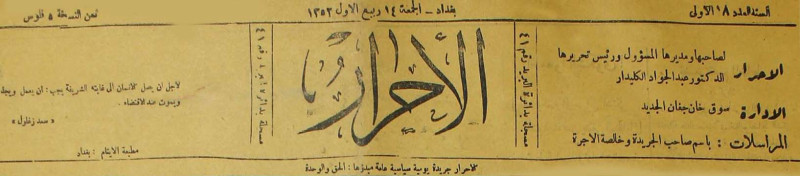 السنة العدد ١٨ الأولى
بغداد - الجمعة ١٤ ربيع الاول ١٣٥٣
ثمن النسخة ٥ فلوس
الاحرار
لصاحبها ومديرها المسؤول ورئيس تحريرها
الدكتور عبد الجواد الكليدار
الادارة : سوق خان جغان الجديد
المراسلات : باسم صاحب الجريدة وخالصة الاجرة
مسجلة بدائرة البريد رقم ٤١
الأحرار
مسجلة بدائرة البريد رقم ٤١
لاجل ان يصل الانسان الى غايته الشريفة يجب : ان يعمل ويجد
ويموت عند الاقتضاء .
« سعد زغلول »
مطبعة الايتام : بغداد
الاحرار جريدة يومية سياسية عامة مبدؤها : الحق والوحدة